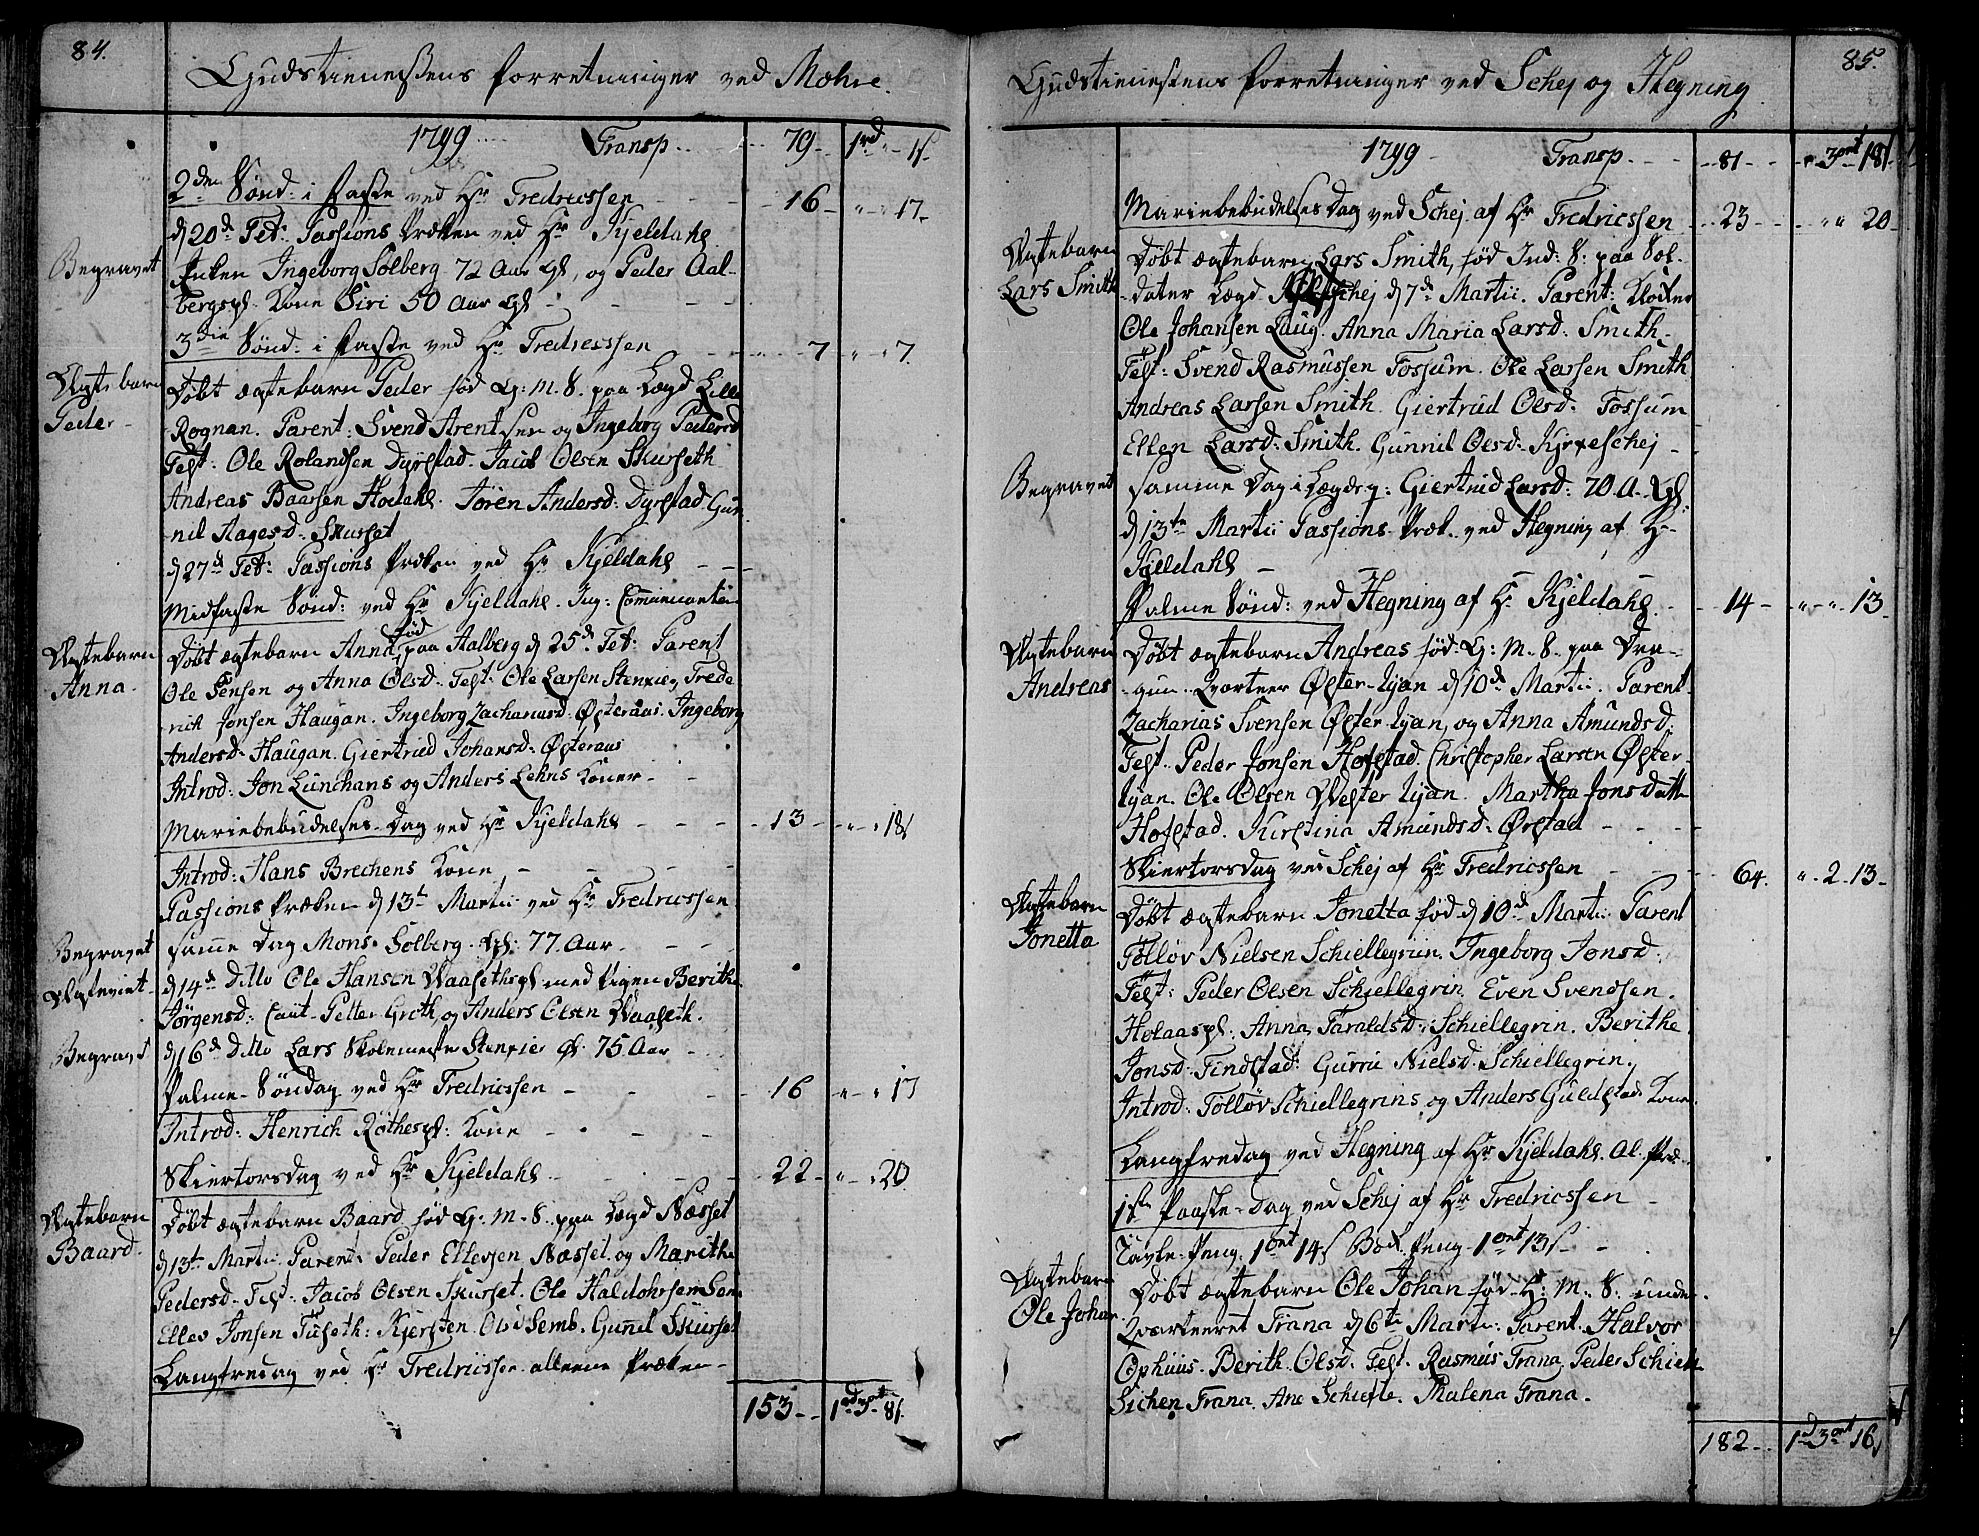 84.
Gudstienestens Forretninger ved Mæhre.
1799 Transp. 79 1rd " 1s
2den Sønd: i Faste ved Hr Fredricssen 16 " " 17
d 20d Feb: Passions Præken ved Hr Kjeldahl
Begravet
Enken Ingeborg Solberg 72 Aar gl, og Peder Aal-
bergspl. Kone Siri 50 Aar gl
3die Sønd: i Faste ved Hr Fredricssen 7 " " 7
Ægtebarn
Peder
Døbt ægtebarn Peder fød G: M. S. paa Lægd Lille
Rognan. Parent: Svend Arentsen og Ingeborg Pedersd
Test: Ole Rolandsen Dyrstad. Jacob Olsen Skurseth
Andreas Baarsen Hodahl. Jøren Andersd: Dyrstad. Gun
nil Aagesd: Skurset
d 27d Feb: Passions Præken ved Hr Kjeldahl
Midfaste Sønd: ved Hr Kjeldahl. Ing: Communicanter
Ægtebarn
Anna
Døbt ægtebarn Anna fød paa Aalberg d 25d Feb: Parent
Ole Jensen og Anna Olsd. Test: Ole Larsen Stenxier, Frede
rich Jonsen Haugan. Ingeborg Zachariasd: Østeraas. Ingeborg
Andersd: Haugan. Giertrud Johansd: Østeraas
Introd: Jon Lunchans og Anders Lehns Koner
Mariebebudelses-Dag ved Hr Kjeldahl 13 " " 18s
Introd: Hans Brechens Kone
Passions Præken d 13t Martii ved Hr Fredricssen
Begravet
samme Dag Mons Solberg gl: 77 Aar
Ægteviet
d 14d Ditto Ole Hansen Waasethspl med Pigen Berithe
Jørgensd: Caut. Petter Groth og Anders Olsen Waaseth.
Begravet
d 16d Ditto Lars Skolemester Stenxier gl: 75 Aar
Palme-Søndag ved Hr Fredricssen 16 " " 17
Introd: Henrich Røthespl: Kone
Skiertorsdag ved Hr Kjeldahl 22 " " 20
Ægtebarn
Baard
Døbt ægtebarn Baard fød G: M. S. paa Lægd Næsset
d 13t Martii Parent: Peder Ellevsen Næsset og Marithe
Pedersd. Test: Jacob Olsen Skurset. Ole Haldorsen Sem
Ellev Jonsen Tuseth: Kjersten Olsd Semb. Gunil Skurset
Langfredag ved Hr Fredricssen alleene Præken
153 1rd 3ort 8s.
85.
Gudstienestens Forretninger ved Schej og Hegning
1799 Transp. 81 " 3ort 18s
Mariebebudelses Dag ved Schej af Hr Fredricssen 23 " " 20
Ægtebarn
Lars Smith
Døbt ægtebarn Lars Smith, fød Ind: S: paa Sol-
dater Lægd Schej d 7d Martii. Parent: Klocker
Ole Johansen Laug. Anna Maria Larsd: Smith.
Test: Svend Rasmussen Fossum. Ole Larsen Smith
Andreas Larsen Smith. Giertrud Olsd. Fossum
Ellen Larsd: Smith. Gunnil Olsd: Kjrxeschej
Begravet
samme Dag i Lægderg: Giertrud Larsd: 70 A. gl.
d 13te Martii Passions Præk. ved Hegning af Hr
Kjeldahl
Palme Sønd: ved Hegning af Hr Kjeldahl 14 " " 13
Ægtebarn
Andreas
Døbt ægtebarn Andreas fød: G: M. S. paa Dra-
gun Qvarteer Øster-Lyan d 10d Martii. Parent
Zacharias Svensen Øster Lyan, og Anna Amundsd.
Test. Peder Jonsen Hofstad. Christopher Larsen Øster-
Lyan. Ole Olsen Wester Lyan. Martha Jons Datter
Hofstad. Kirstina Amundsd: Ørstad
Skiertorsdag ved Schej af Hr Fredricssen 64. " 2 13
Ægtebarn
Jonetta
Døbt ægtebarn Jonetta fød d 10d Martii Parent
Tølløv Nielsen Schiellegrin. Ingeborg Jonsd.
Test: Peder Olsen Schiellegrin Even Svendsen.
Holaaspl. Anna Taraldsd: Schiellegrin. Berithe
Jonsd. Findstad: Gurru Nielsd. Schiellegrin.
Introd: Tølløv Schiellegrins og Anders Guldstads Kone
Langfredag ved Hegning af Hr Kjeldahl. Al. Præ.
1ste Paaske-Dag ved Schej af Hr Fredricssen
Tavle-Peng. 1ort 14s Bøck. Peng 1ort 13s
Ægtebarn
Ole Johan
Døbt ægtebarn Ole Johan fød H: M. S. unde-
Qvarteeret Trana d 6te Martii: Parent. Halvor
Ophuus. Berith. Olsd: Test. Rasmus Trana, Peder Schiefte
Sichen Trana. Ane Schiefte. Malena Trana.
182 1rd 3ort 16s